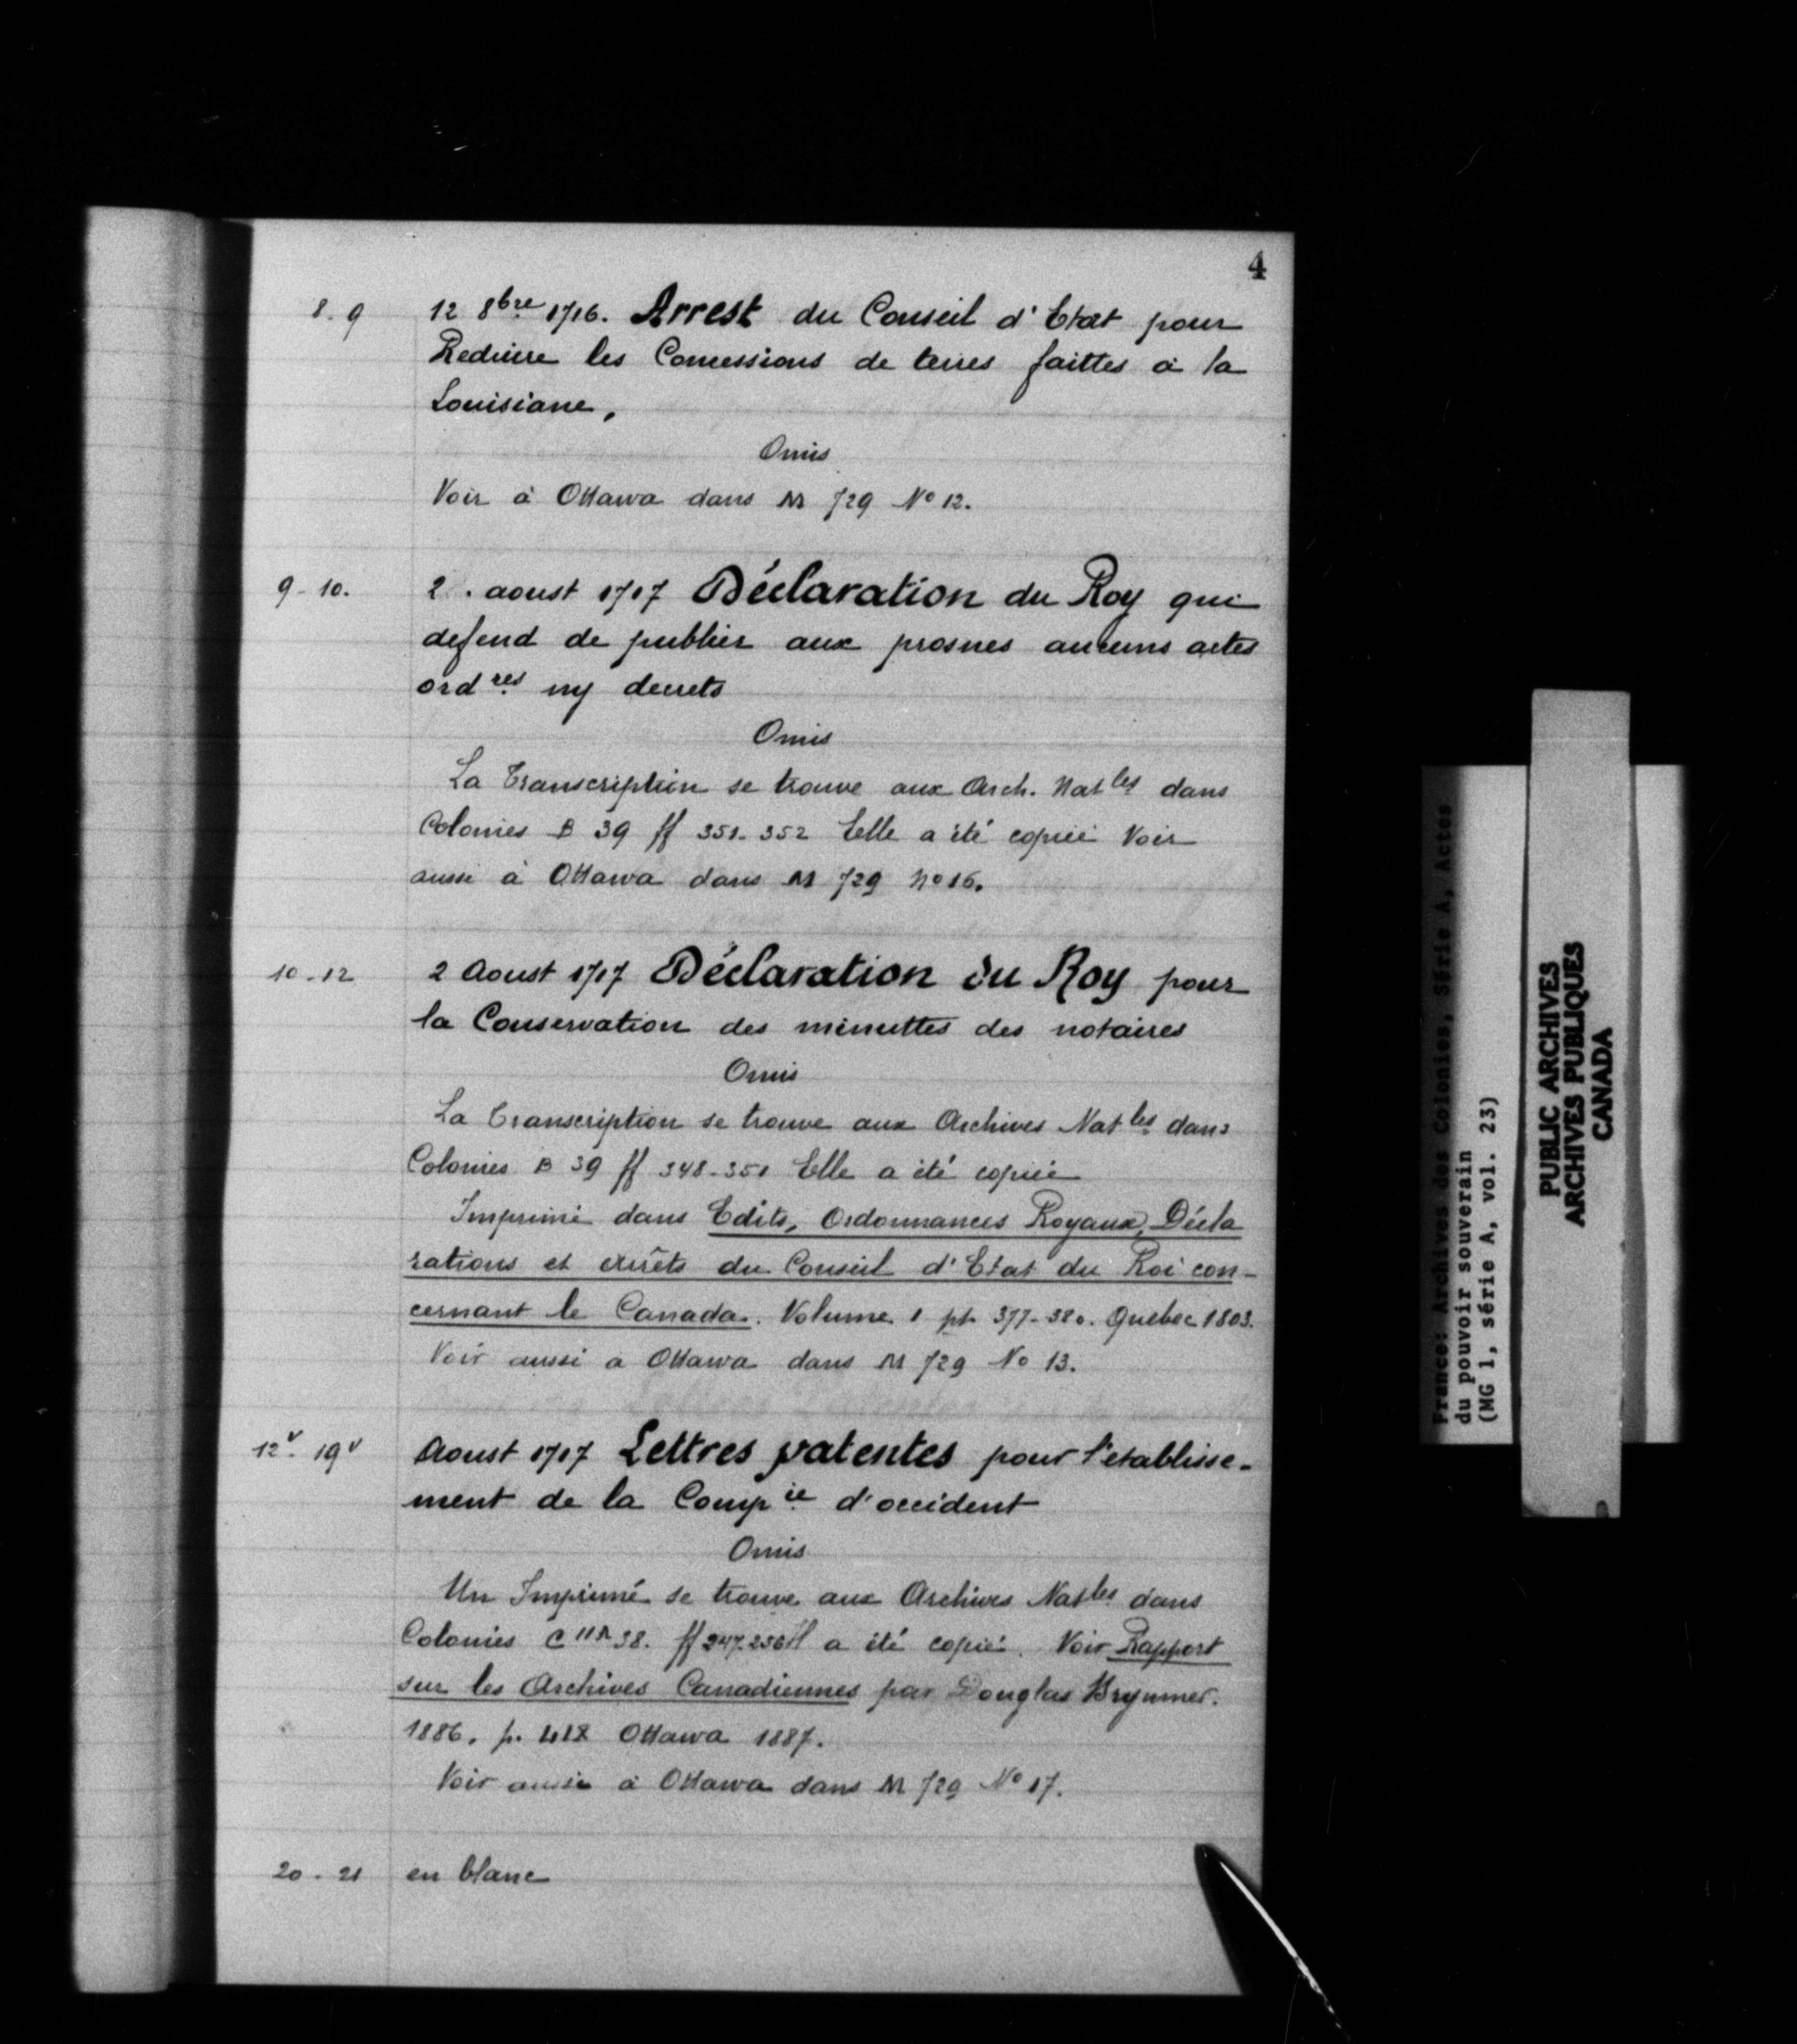 4
8. 9 12 8bre 1716. Arrest du Conseil d'Etat pour
Reduire les Concessions de terres faittes à la
Louisiane,
Omis
Voir à Ottawa dans M 729 No 12.
9-10. 2. aoust 1717 Déclaration du Roy qui
defend de publier aux prosnes aucuns actes
ordres ny decrets
Omis
La Transcription se trouve aux Arch. Natles dans
Colonies B 39 ff 351-352 Elle a été copiée Voir
aussi à Ottawa dans M 729 No 16.
10-12 2 Aoust 1717 Déclaration du Roy pour
la Conservation des minuttes des notaires
Omis
La Transcription se trouve aux Archives Natles dans
Colonies B 39 ff 348-351 Elle a été copiée
Imprimé dans Edits, Ordonnances Royaux, Décla
rations et arrêts du Conseil d'Etat du Roi con-
cernant le Canada. Volume 1 pp. 377-380. Quebec 1803.
Voir aussi a Ottawa dans M 729 No 13.
12v- 19v Aoust 1717 Lettres patentes pour l'etablisse-
ment de la Compie d'occident
Omis
Un Imprimé se trouve aux Archives Natles dans
Colonies C 11A 38. ff 247-256 Il a été copié. Voir Rapport
sur les Archives Canadiennes par Douglas Brymner.
1886. p. Ottawa 1887.
Voir aussi à Ottawa dans M 729 No 17.
20-21 en blanc
France: Archives des Colonies, Série A, Actes
du pouvoir souverain
(MG 1, série A, vol. 23)
PUBLIC ARCHIVES
ARCHIVES PUBLIQUES
CANADA